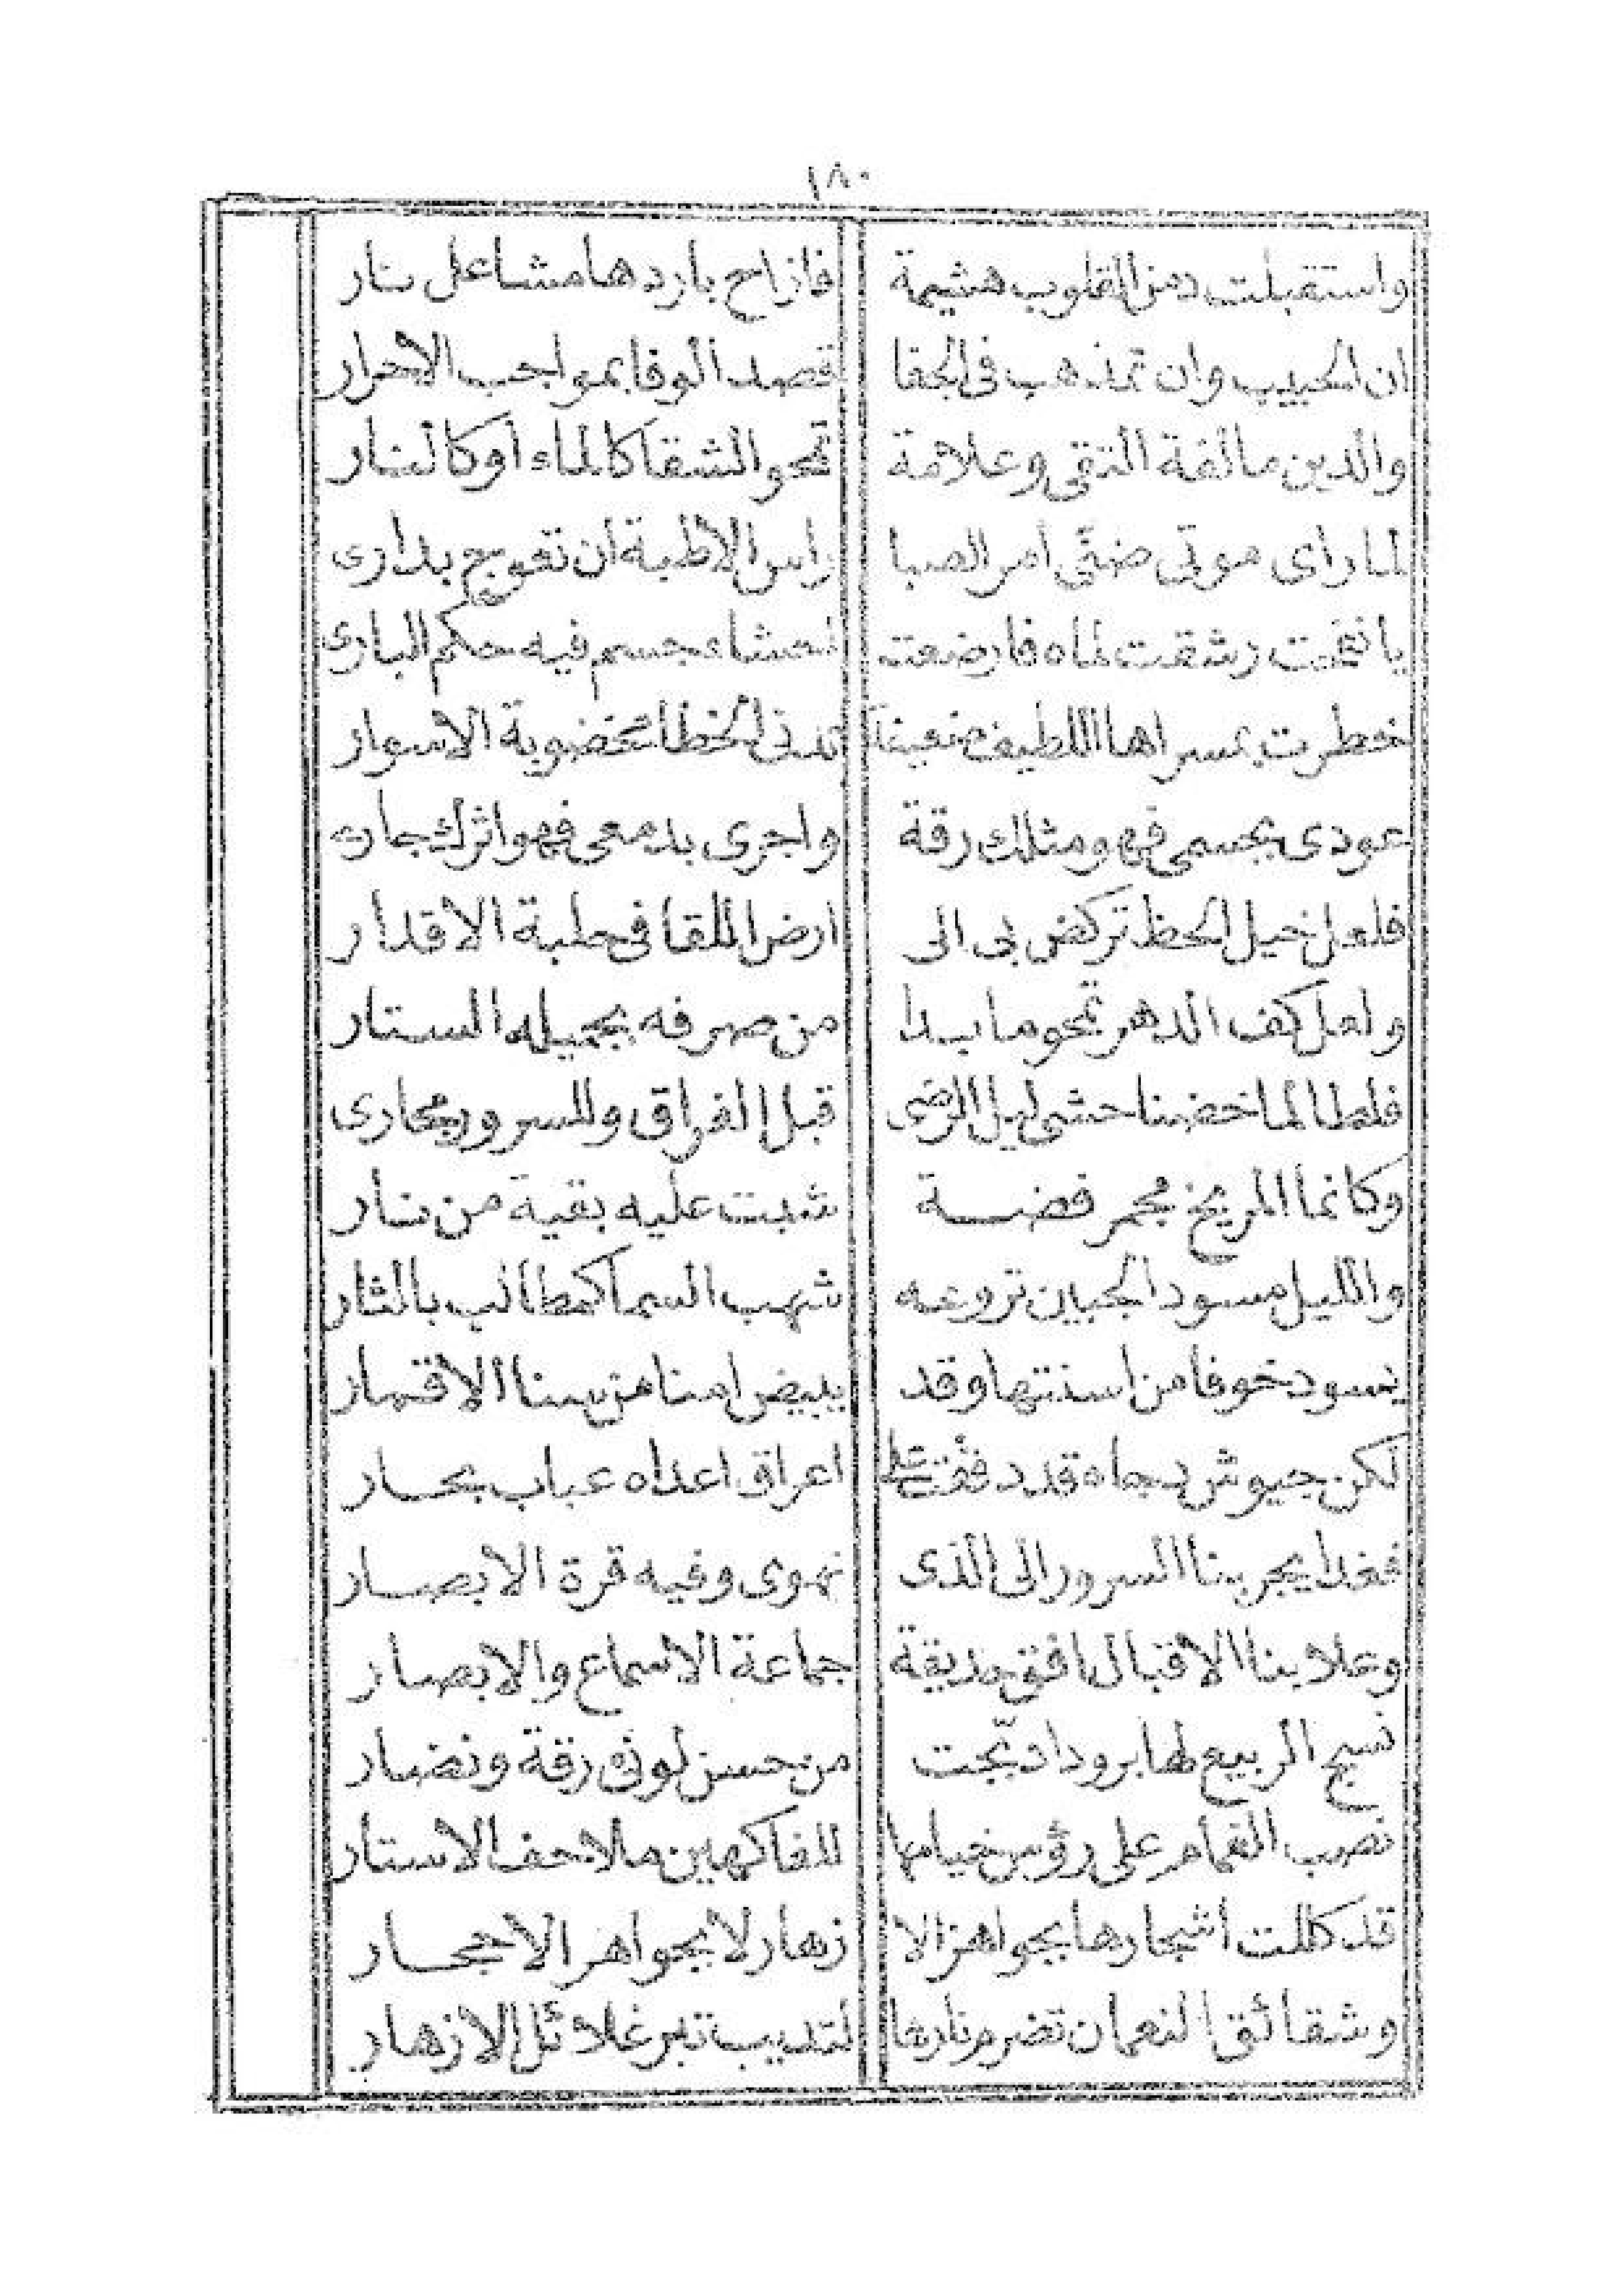 ١٨٠
واستقبلت دمن القلوب هشيمة فازاح باردها مشاعل نار
ان الحبيب وان تمذهب في الجفا قصد الوفا بمواجب الاحرار
والدين مالفة التقى وعلامة تمحو الشقا كالماء أو كالنار
لما رأى موتى ضنى أمر الصبا راس الاطبة ان تعوج بدارى
يا نفحت رشقت لماه فارضعت جسم فيه حكم البارى
خطرت بمسراها اللطيف تدنى الخطا مخضوبة الاسوار
عودى بجسمى فهو مثلك رقة واجرى بدمعى فهو اثرك جار
فلعل خيل الحظ تركض بى الى ارض اللقا فى حلبة الاقدار
ولعل كف الدهر تمحو ما بدا من صرفه بجميله الستار
فلطالما خضبنا حشى ليل الرضى قبل الفراق وللسرور مجارى
وكانما المريخ مجمر فضة شبت عليه بقية من نار
والليل مسود الجبين تروعه شهب السما كمطالب بالثار
يسود خوفا من اسنتها وقد يبيض امنا من سنا الاقمار
لكن جيوش دجاه قد دفقت على اعراق اعداه عباب بحار
فغدا يجر بنا السرور الى الذى نهوى وفيه قرة الابصار
وعلا بنا الاقبال افق حديقة جماعة الاسماع والابصار
نسج الربيع لها برودا دبجت من حسن لونى رقة ونضار
نصب الغمام على رؤس خيامها للفاكهين ملاحف الاستار
قد كللت أشجارها بجواهر الا زهار لا بجواهر الاحجار
وشقائق النعمان تضرم نارها لتذيب تبر غلائل الازهار